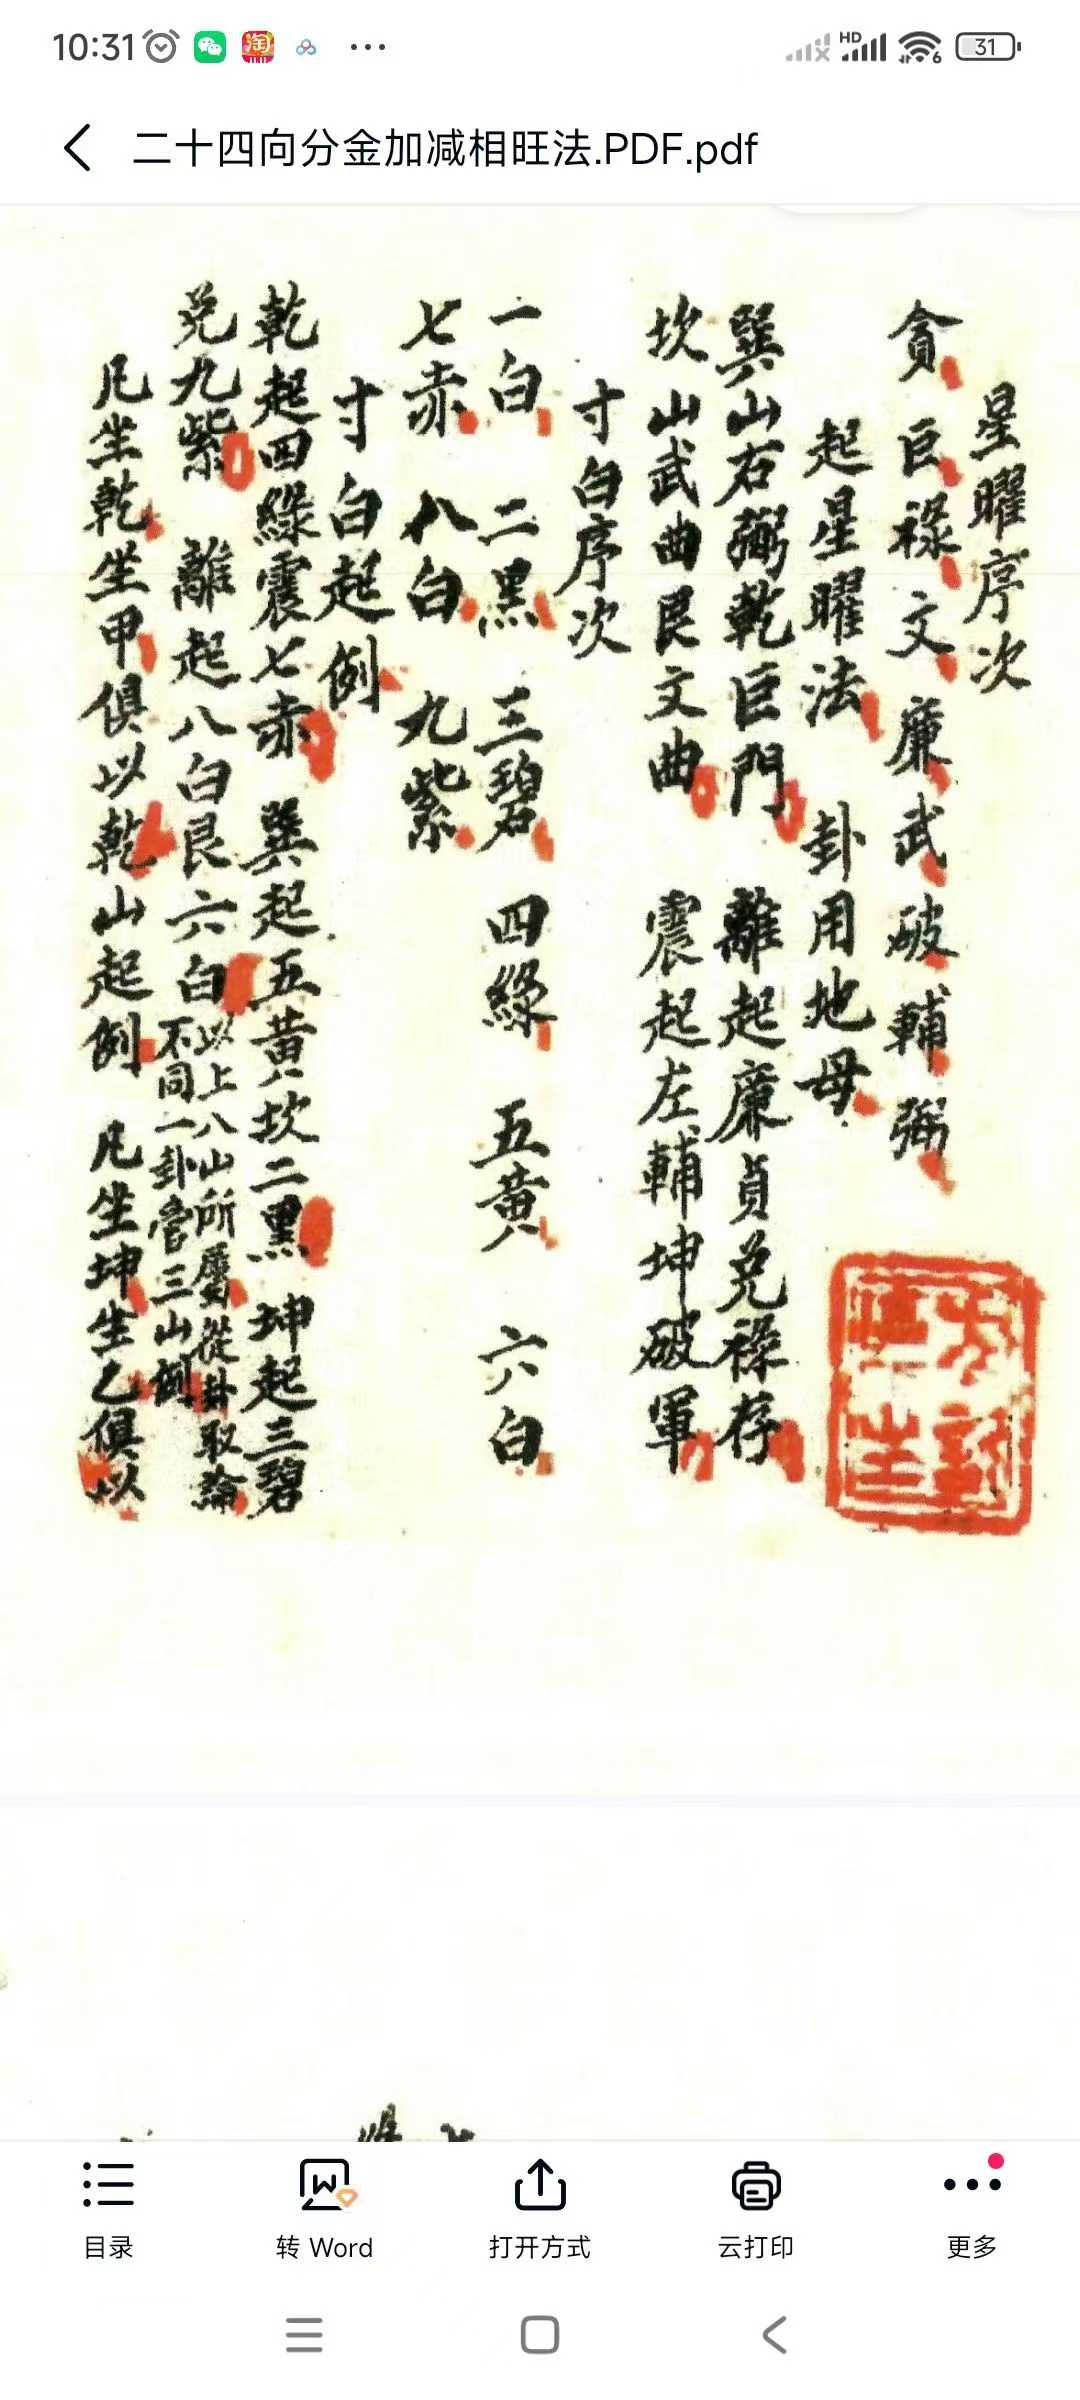 10:31
HD
6
31
二十四向分金加减相旺法.PDF.pdf
星曜序次
貪巨祿文廉武破輔弼
起星曜法 卦用地母
巽山右弼乾巨門 離起廉貞兌祿存
坎山武曲艮文曲 震起左輔坤破軍
寸白序次
一白 二黑 三碧 四綠 五黃 六白
七赤 八白 九紫
寸白起例
乾起四綠震七赤 巽起五黃坎二黑 坤起三碧
兌九紫 離起八白艮六白 以上八山所屬從卦取論
不同一卦管三山例
凡坐乾坐甲俱以乾山起例 凡坐坤坐乙俱以
目录
转 Word
打开方式
云打印
更多